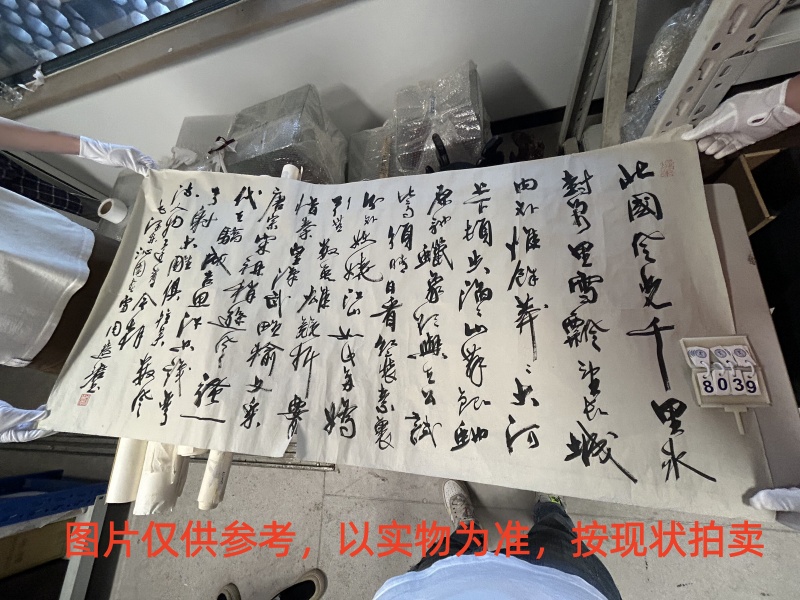 北國风光千里冰
封万里雪飘望长城
内外惟馀莽莽大河
上下顿失滔滔山舞银蛇
原驰蠟象欲與天公試
比高须晴日看红装素裹
分外妖娆江山如此多嬌
引無数英雄競折腰
惜秦皇漢武略输文采
唐宗宋祖稍逊风骚一
代天骄成吉思汗只识弯
弓射大雕俱往矣数风
流人物还看今朝
毛泽东沁园春雪
8039
图片仅供参考，以实物为准，按现状拍卖